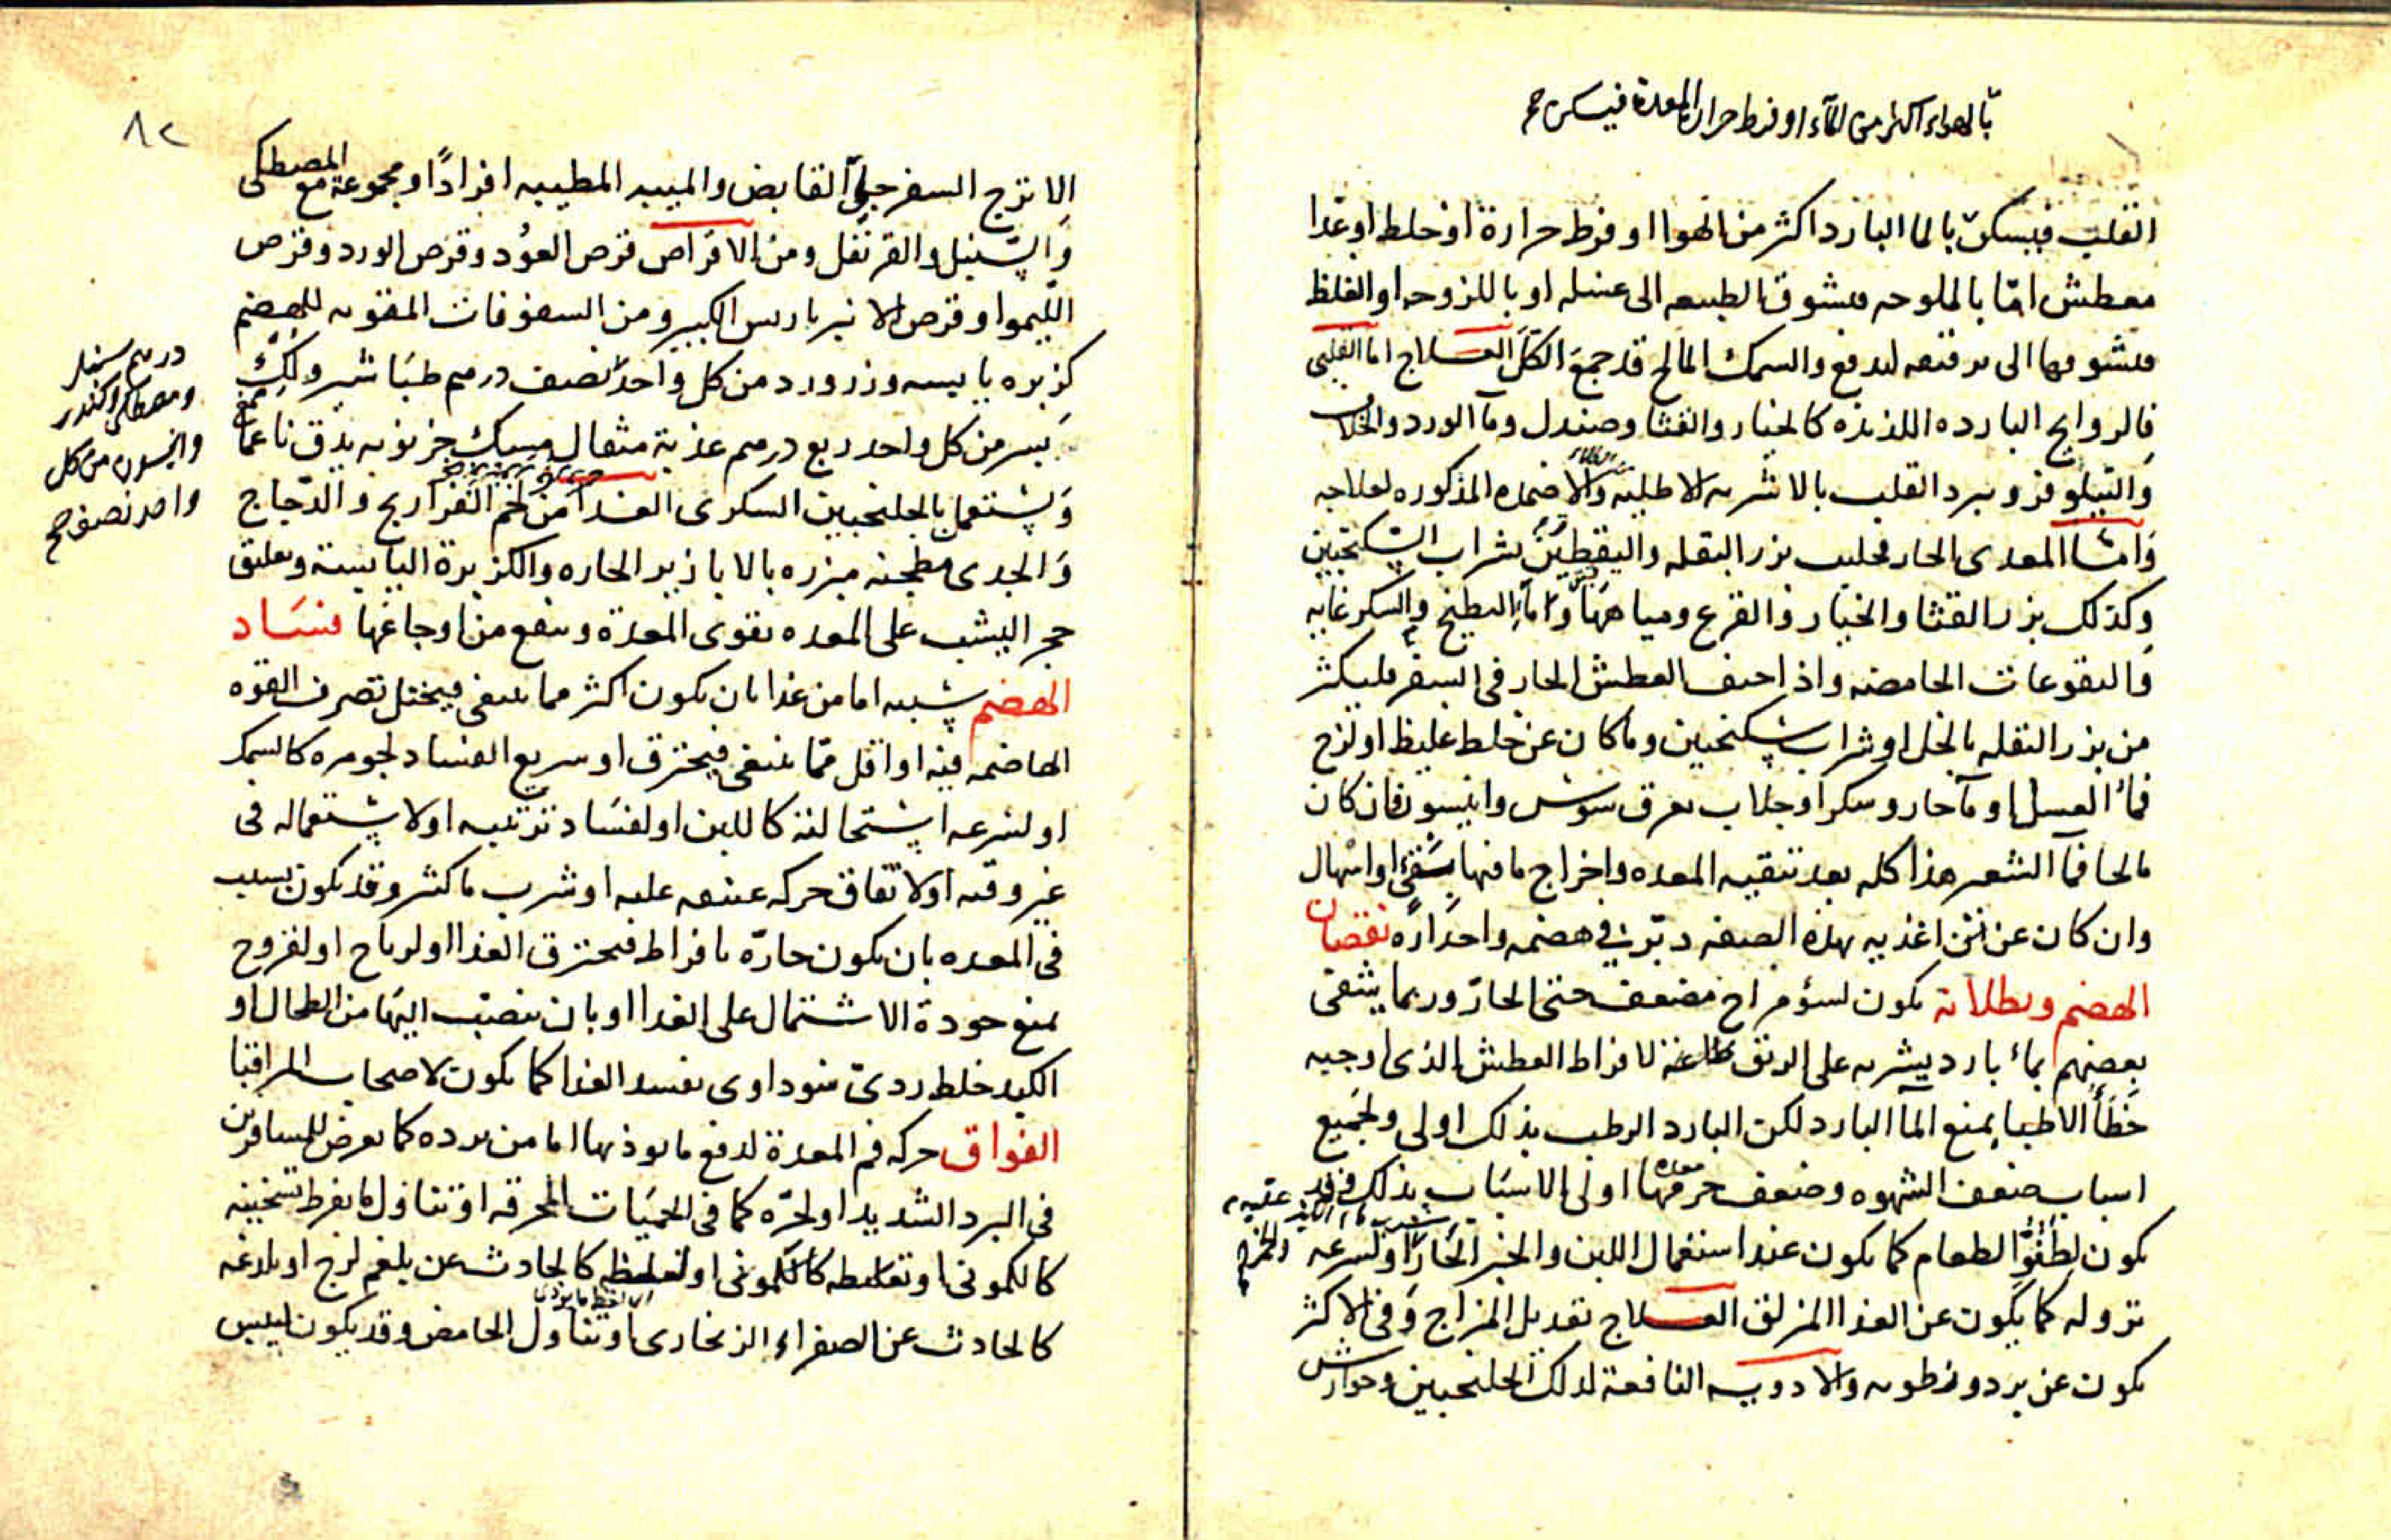 بالهواء اكثر من الماء او فرط حرارة المعدة فيسكن صح
القلب فيسكن بالما البارد اكثر من الهوا او فرط حرارة او خلط او غذا
معطش امّا بالملوحه فيشوق الطبيعه الى غسله او باللزوجه او الغلظ
فيشوقها الى ترقيقه ليدفع والسمك المالح قد جمع الكلّ العلاج اما القلبى
فالروايح البارده اللذيذه كالخيار والقثا وصندل ومآ الورد والخلاف
والنيلوفر ويبرد القلب بالاشربه الاطليه والاضمده المذكوره لعلاجه
وامّا المعدى الحار فحليب بزر البقله واليقطين بشراب السكنجبين
وكذلك بزر القثا والخيار والقرع ومياهها وامآ البطيخ والسكر غايه
والنقوعات الحامضه واذا خيف العطش الحار فى السفر فليكثر
من بزر البقله بالخل او شراب سكنجبين وما كان عن خلط غليظ او لزج
فمآ العسل او مآ حار وسكر او جلاب بعرق سوس وانيسون فان كان
مالحا فمآ الشعير هذا كله بعد تنقيه المعده واخراج ما فيها بقئ او اسهال
وان كان عن اغذيه بهذه الصفه دبّر فى هضمه واحداره نقصان
الهضم وبطلانه يكون لسؤ مزاج مضعف حتى الحارّ وربما يشفى
بعضهم بمآ بارد يشربه على الريق لافراط العطش الذى اوجبه
خطأ الاطبا بمنع المآ البارد لكن البارد الرطب بذلك اولى ولجميع
اسباب ضعف الشهوه وضعف جرمها اولى الاسباب بذلك وقد
يكون لطفوّ الطعام كما يكون عند استعمال اللبن والخبز الحار او لسرعه
نزوله كما يكون عن الغذا المزلق العلاج تعديل المزاج وفى الاكثر
يكون عن برد ورطوبه والادويه النافعة لذلك الجلنجبين وجوارش
٨٢
الاترج السفرجلى القابض والميبه المطيبه افرادًا ومجموعة مع المصطكى
والسنبل والقرنفل ومن الاقراص قرص العود وقرص الورد وقرص
الليموا وقرص الانبرباريس الكبير ومن السفوفات المقويه للهضم
كزبره يابسه وزرورد من كل واحد نصف درهم طباشير ولكّ
من كل واحد ربع درهم عذبة مثقال مسك خرنوبه يدق ناعما
ويستعمل بالجلنجبين السكرى الغذا من لحم الفراريج والدجاج
والجدى مطجنه مبزره بالابازير الحاره والكزبرة اليابسة وتعليق
حجر اليشب على المعده يقوى المعدة وينفع من اوجاعها فساد
الهضم سببه اما من غذا بان يكون اكثر مما ينبغى فيختل تصرف القوه
الهاضمه فيه او اقل ممّا ينبغى فيحترق او سريع الفساد لجوهره كالسمك
او لسرعه استحالته كاللبن او لفساد ترتيبه او لاستعماله فى
غير وقته او لاتفاق حركه عنيفه عليه او شرب ما كثير وقد يكون بسبب
فى المعده بان يكون حارّه بافراط فيحترق الغذا او لرياح او لقروح
يمنع جودة الاشتمال على الغذا او بان ينصب اليها من الطحال او
الكبد خلط ردئ سوداوى يفسد الغذا كما يكون لاصحاب المراقيا
الفواق حركه فم المعدة لدفع ما يوذيها اما من برده كما يعرض للمسافرين
فى البرد الشديد او لحرّه كما فى الحميات المحرقه او تناول ما يفرط تسخينه
كالكمونى او لغلظه كالحادث عن بلغم لزج او بلذعه
كالحادث عن الصفراء الزنجارى او تناول الحامض وقد يكون ليبس
ومصطكى وكندر
وانيسون من كل
واحد نصف صح